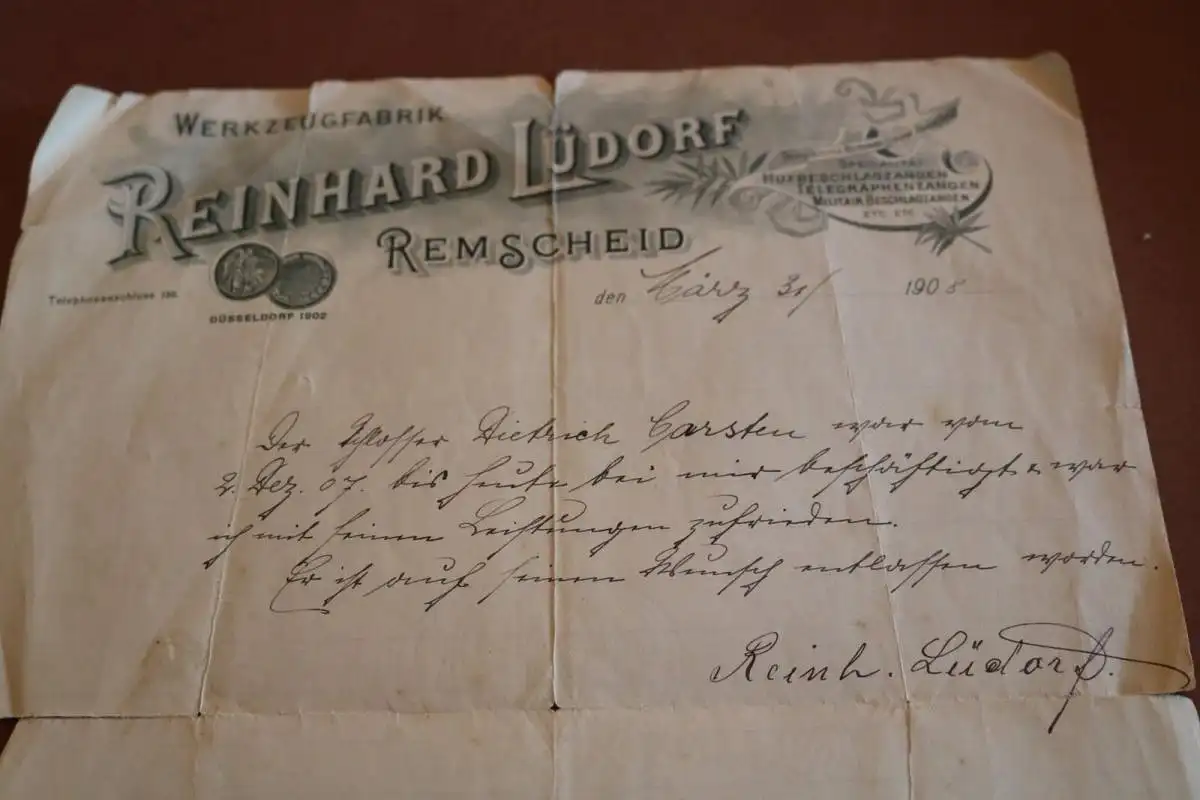 WERKZEUGFABRIK
REINHARD LÜDORF
REMSCHEID
SPECIALITÄT:
HUFBESCHLAGZANGEN
TELEGRAPHENZANGEN
MILITAIR BESCHLAGZANGEN
ETC. ETC.
Telephonanschluss 180.
DÜSSELDORF 1902
den März 31/ 1908
Der Schlosser Dietrich Carsten war vom
2. Dez. 07. bis heute bei mir beschäftigt & war
ich mit seinen Leistungen zufrieden.
Er ist auf seinen Wunsch entlassen worden.
Reinh. Lüdorf.